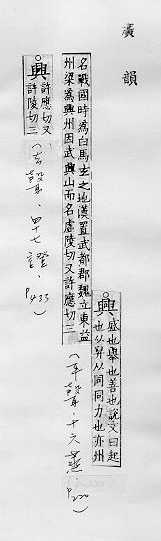 廣韻
興盛也舉也善也說文曰起
也从舁从同同力也亦州
名戰國時為白馬氐之地漢置武都郡魏立東益
州梁為興州因武興山而名虛陵切又許應切三
(平聲.十六蒸.P200)
興許應切又
許陵切三
(去聲.四十七證.P433)